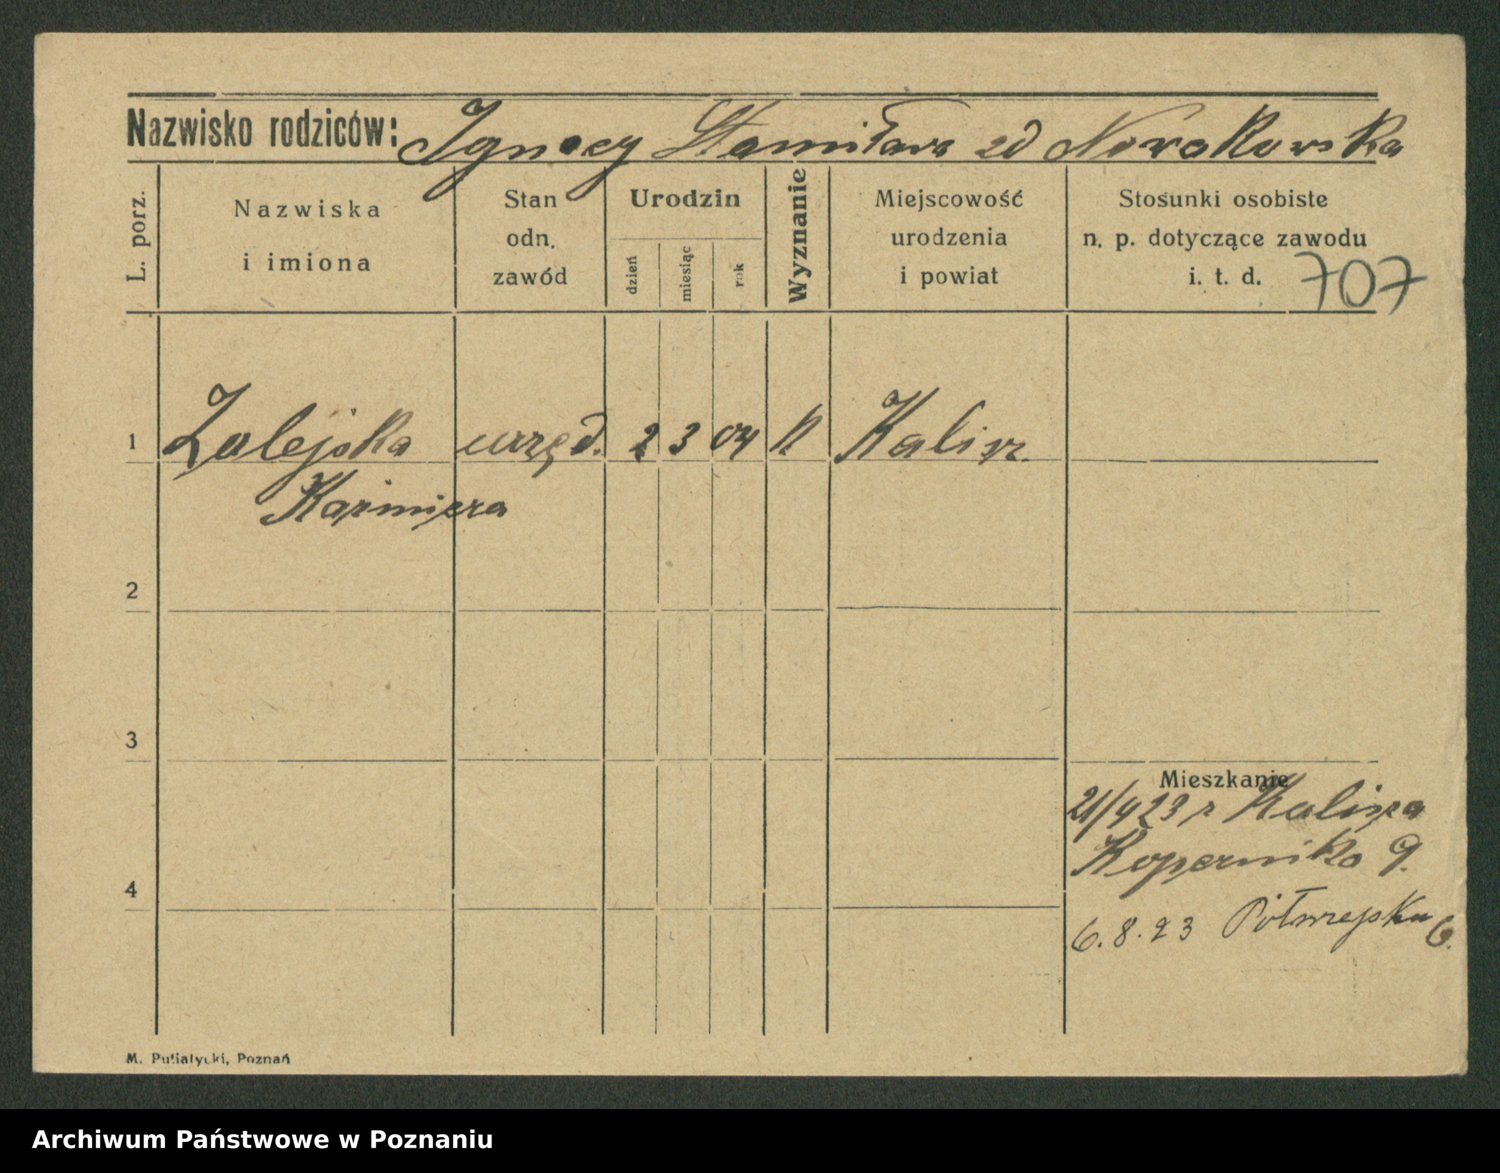 Nazwisko rodziców: Ignacy Stanisława zd Nowakowska
L. porz.
Nazwiska
i imiona
Stan
odn.
zawód
Urodzin
dzień
miesiąc
rok
Wyznanie
Miejscowość
urodzenia
i powiat
Stosunki osobiste
n. p. dotyczące zawodu
i. t. d. 707
1 Zalejska urzęd. 2 3 04 k Kalisz.
Kazimiera
2
3
Mieszkanie
21/4 23 r Kalisza
Kopernika 9.
4
6.8.23 Półwiejska 6.
M. Putiatycki, Poznań
Archiwum Państwowe w Poznaniu